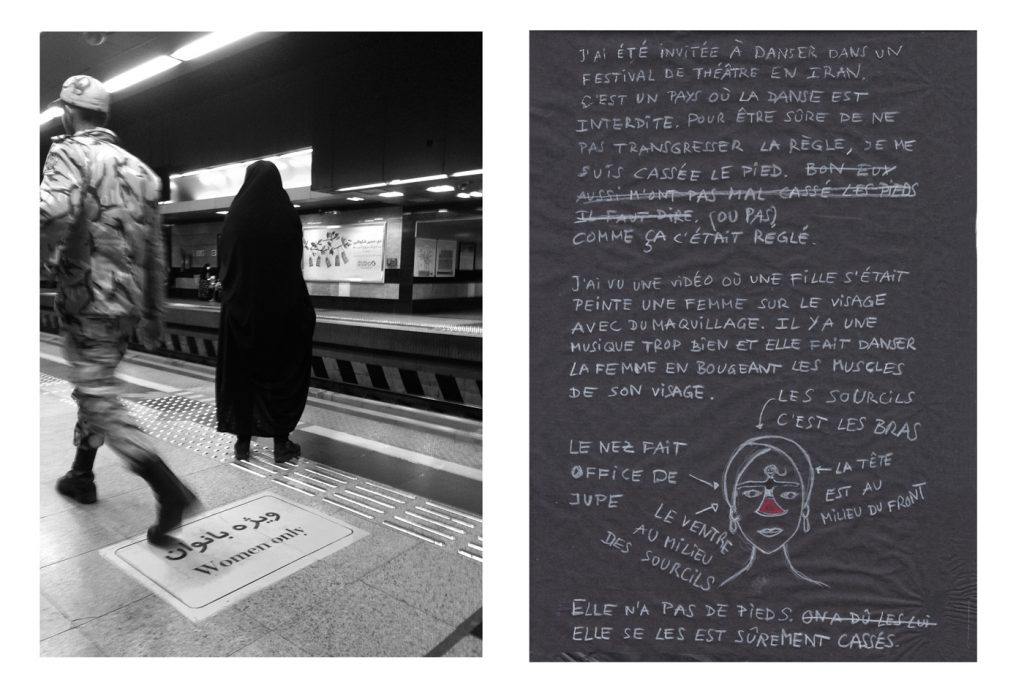 ویژه بانوان
Women only
J'AI ÉTÉ INVITÉE À DANSER DANS UN
FESTIVAL DE THÉÂTRE EN IRAN.
C'EST UN PAYS OÙ LA DANSE EST
INTERDITE. POUR ÊTRE SÛRE DE NE
PAS TRANSGRESSER LA RÈGLE, JE ME
SUIS CASSÉE LE PIED. BON EUX
AUSSI M'ONT PAS MAL CASSÉ LES PIEDS
IL FAUT DIRE. (OU PAS)
COMME ÇA C'ÉTAIT RÉGLÉ.
J'AI VU UNE VIDÉO OÙ UNE FILLE S'ÉTAIT
PEINTE UNE FEMME SUR LE VISAGE
AVEC DU MAQUILLAGE. IL Y A UNE
MUSIQUE TROP BIEN ET ELLE FAIT DANSER
LA FEMME EN BOUGEANT LES MUSCLES
DE SON VISAGE.
LES SOURCILS
C'EST LES BRAS
LE NEZ FAIT
OFFICE DE
JUPE
LA TÊTE
EST AU
MILIEU DU FRONT
LE VENTRE
AU MILIEU
DES SOURCILS
ELLE N'A PAS DE PIEDS. ON A DÛ LES LUI
ELLE SE LES EST SÛREMENT CASSÉS.